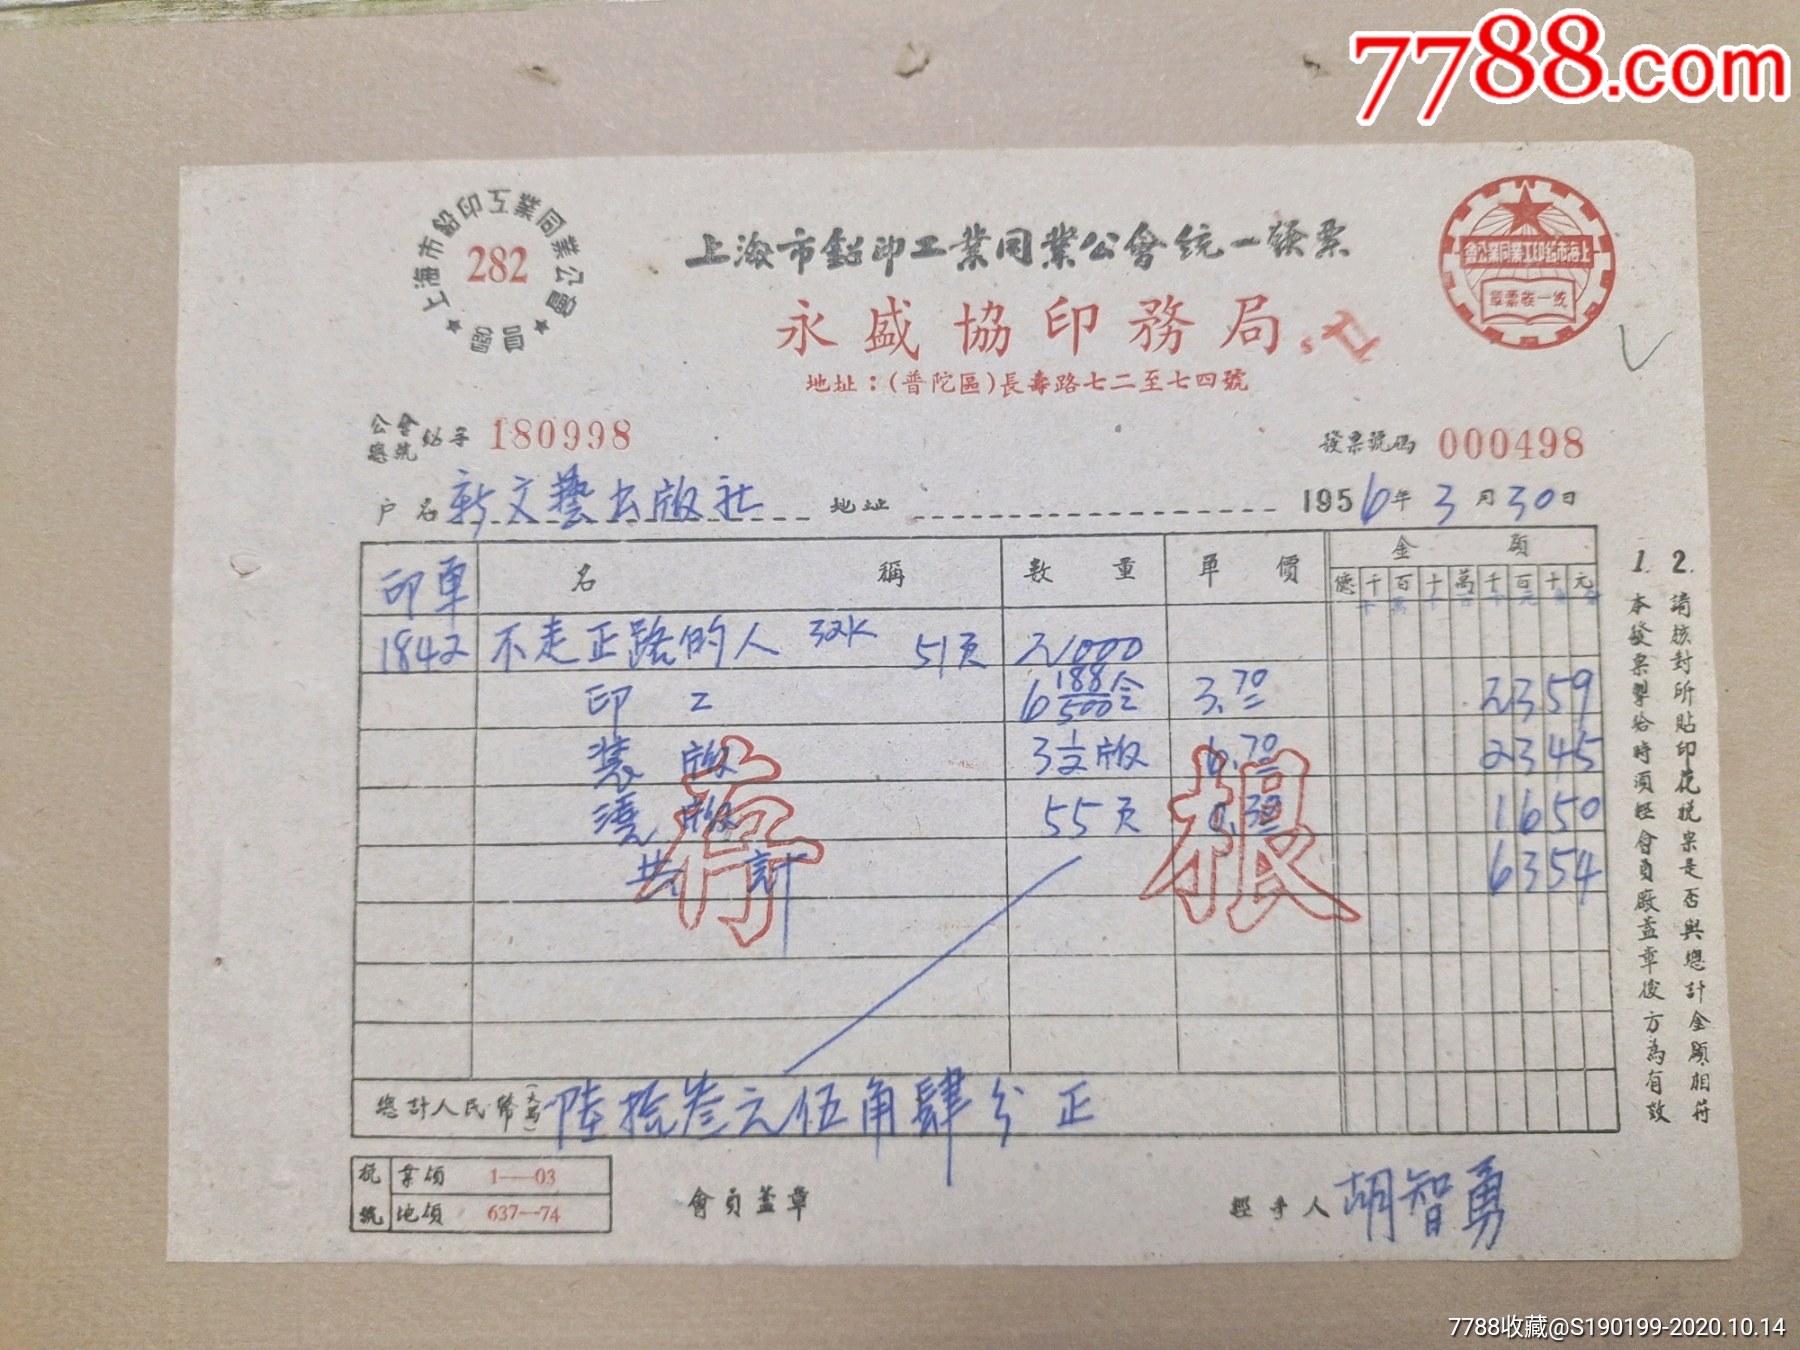 7788.com
上海市鉛印工業同業公會會員
282
上海市鉛印工業同業公會統一發票
上海市鉛印工業同業公會
統一發票章
永盛協印務局
地址：(普陀區)長壽路七二至七四號
公會總號 鉛字 180998
發票號碼 000498
户名 新文藝出版社 地址 1956年3月30日
印單 名稱 數量 單價 金額
億 千 百 十 萬 千 百 十 元
1842 不走正路的人 32K 51页 21000
印工 6 188/500令 3.70 2359
装版 3 1/2版 6.70 2345
澆版 55页 0.30 1650
共計 6354
存根
總計人民幣(大寫) 陸拾叁元伍角肆分正
税號 業領 1—03
地領 637—74
會員蓋章
經手人 胡智勇
1. 本發票掣給時須經會員廠蓋章後方為有效
2. 請核對所貼印花税票是否與總計金額相符
7788收藏@S190199-2020.10.14